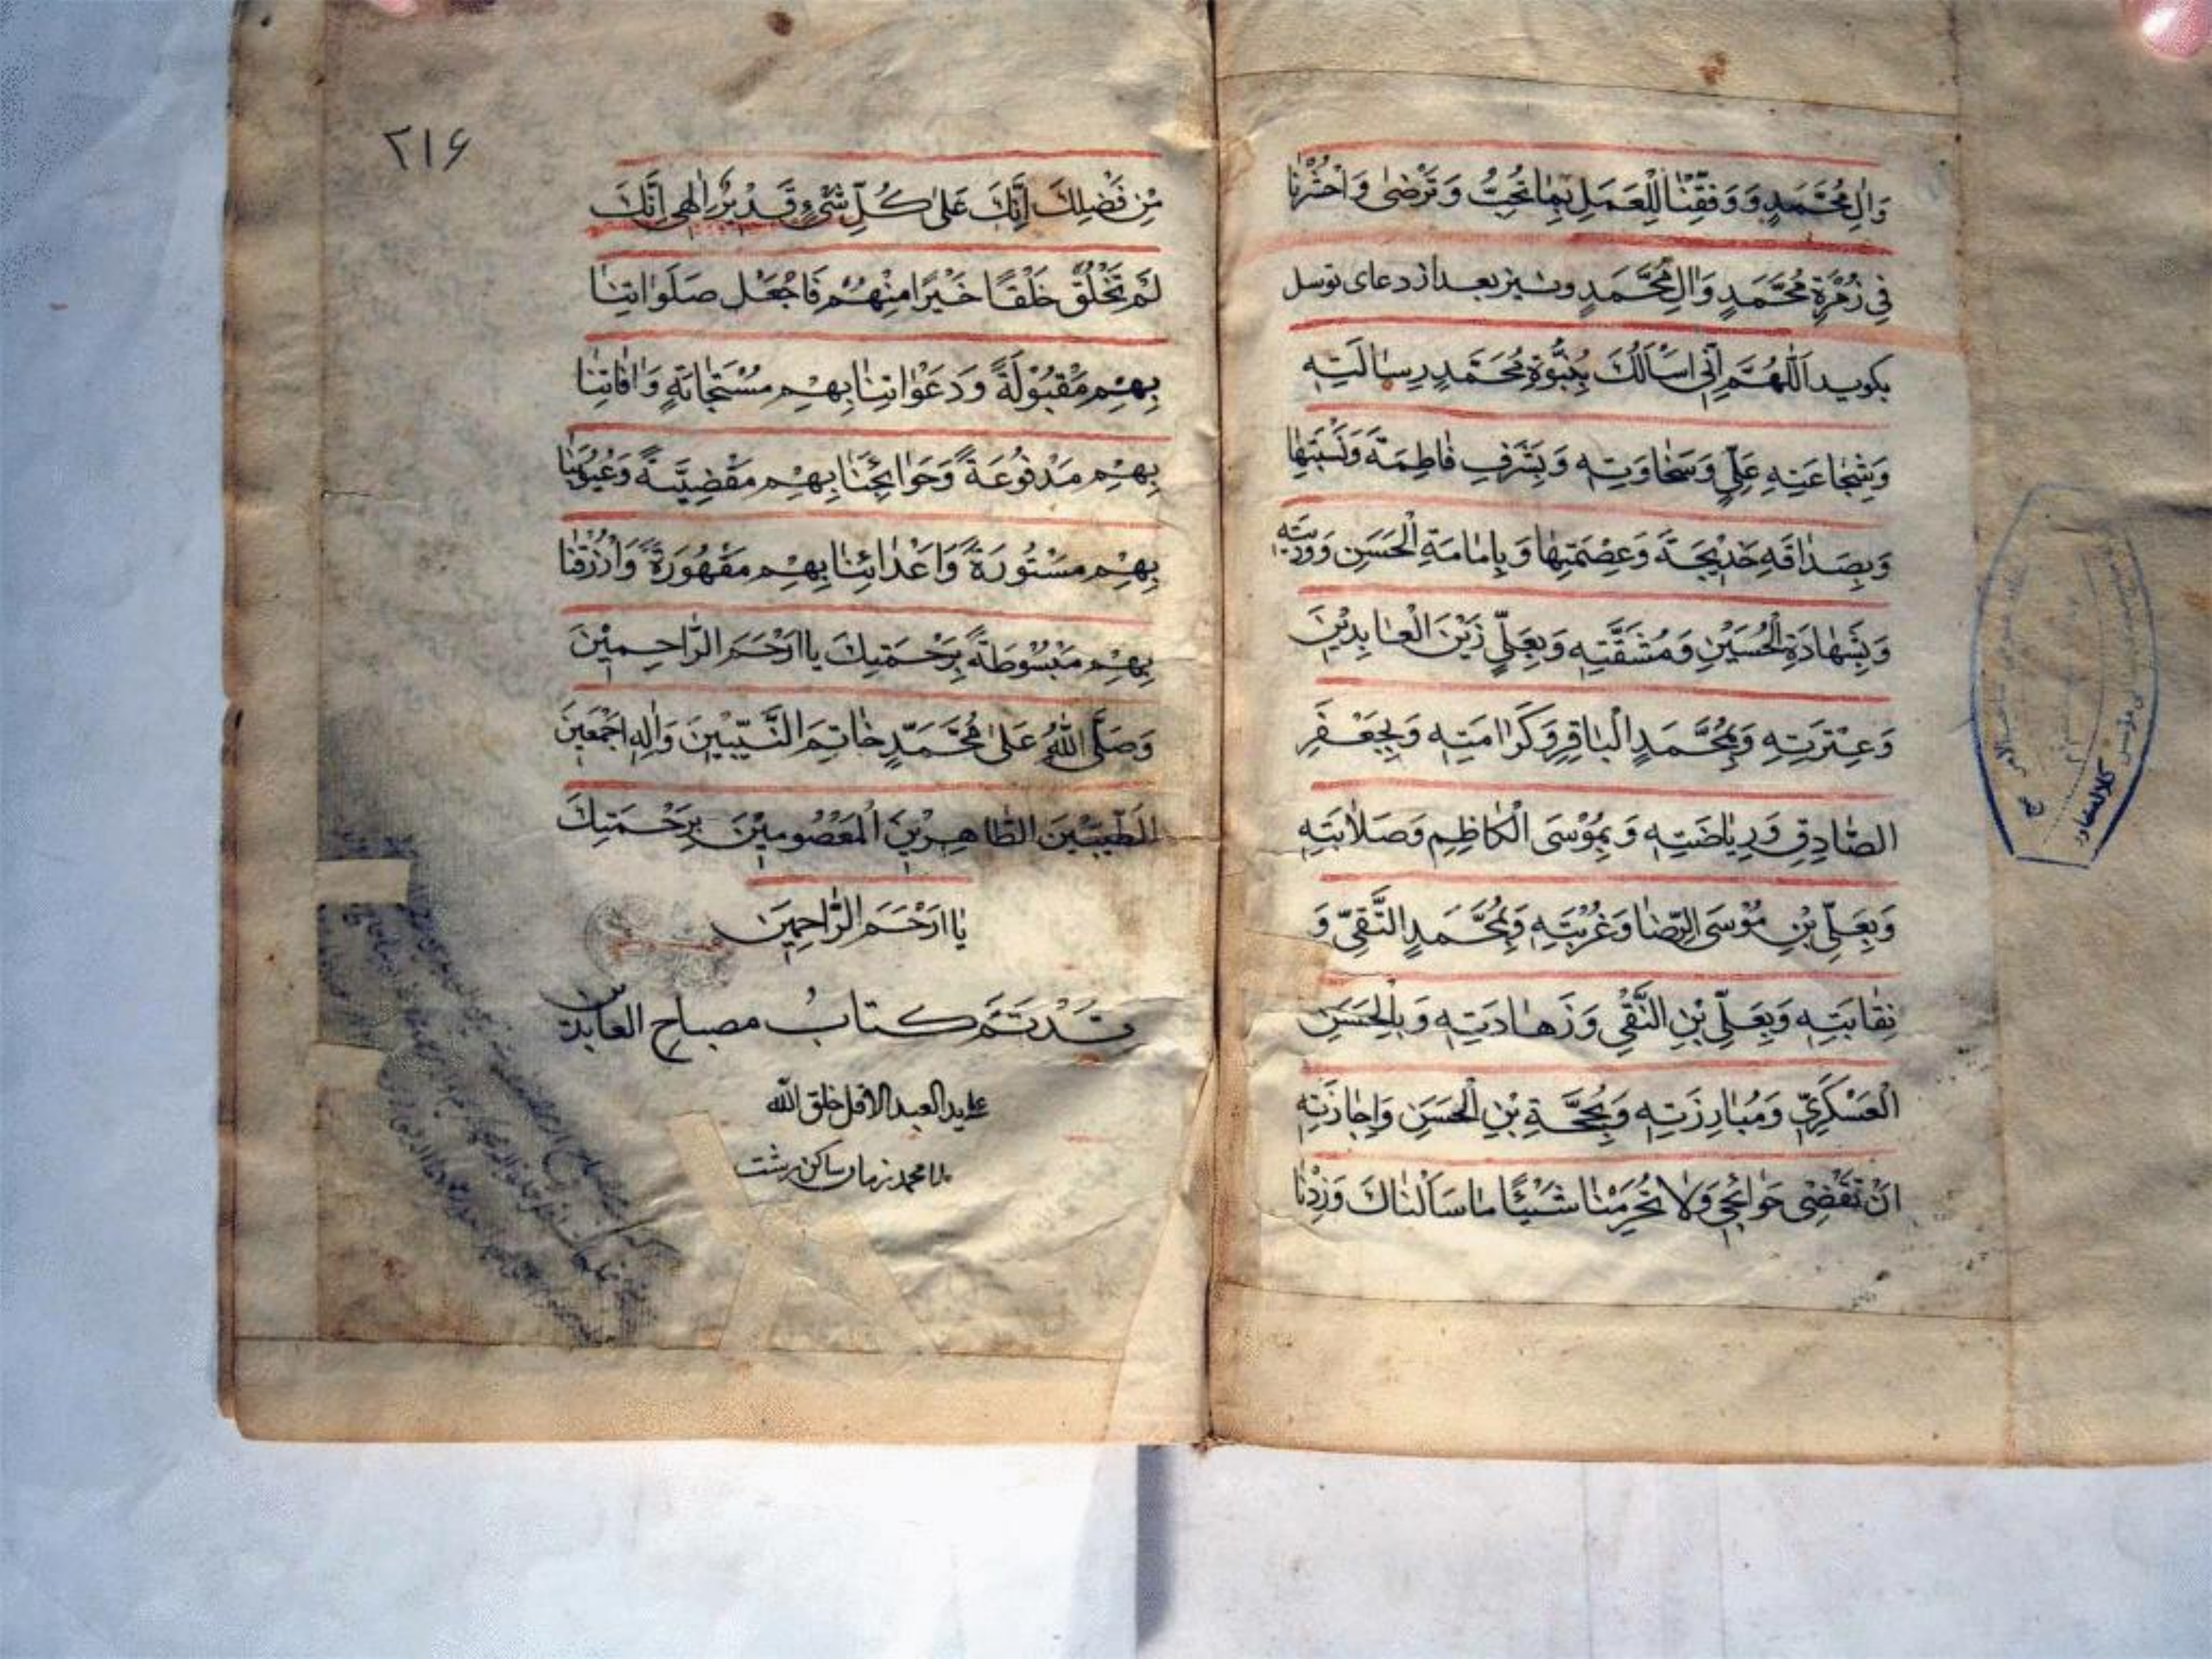 وَالِ مُحَمَّدٍ وَ وَفِّقْنٰا لِلْعَمَلِ بِمٰا تُحِبُّ وَ تَرْضىٰ وَاحْشُرْنٰا
فِي زُمْرَةِ مُحَمَّدٍ وَالِ مُحَمَّدٍ و نیز بعد از دعای توسل
بکوید اَللّٰهُمَّ اِنّي اَسْاَلُكَ بِنُبُوَّةِ مُحَمَّدٍ رِسٰالَتِهِ
وَ بِشَجٰاعَتِهِ عَلِيٍّ وَ سَخٰاوَتِهِ وَ بِشَرَفِ فٰاطِمَةَ وَ نِسْبَتِهٰا
وَ بِصَدٰاقَهِ خَدْيجَةَ وَ عِصْمَتِهٰا وَ بِاِمٰامَةِ الْحَسَنِ وَ
وَ بِشَهٰادَةِ الْحُسَيْنِ وَ مُشَقَّتِهِ وَ بِعَلِيٍّ زَيْنَ الْعٰابِدِيْنَ
وَ عِتْرَتِهِ وَ بِمُحَمَّدٍ الْبٰاقِرِ وَ كَرٰامَتِهِ وَ بِجَعْفَرِ
الصّٰادِقِ وَ رِيٰاضَتِهِ وَ بِمُوْسَى الْكٰاظِمِ وَ صَلٰابَتِهِ
وَ بِعَلِيِّ بْنِ مُوْسَى الرِّضٰا وَ غُرْبَتِهِ وَ بِمُحَمَّدٍ التَّقِيِّ وَ
نِقٰابَتِهِ وَ بِعَلِيِّ بْنِ النَّقْيِ وَ زَهٰادَتِهِ وَ بِالْحَسَنِ
الْعَسْكَرِيِّ وَ مُبٰارِزَتِهِ وَ بِحُجَّةِ بْنِ الْحَسَنِ وَ اِجٰازَتِهِ
اَنْ تَقْضِىَ حَوٰائِجي وَ لٰا تَحْرِمْنٰا شَيْئًا مٰا سَاَلْنٰاكَ وَ زِدْنٰا
٢١۶
مْنِ فَضْلِكَ اِنَّكَ عَلىٰ كُلِّ شَيْءٍ قَديْرٌ اِلٰهي اِنَّكَ
لَمْ تَخْلُقْ خَلْقًا خَيْرًا مِنْهُمْ فَاجْعَلْ صَلَوٰاتِنٰا
بِهِمْ مَقْبُوْلَةً وَ دَعَوٰاتِنٰا بِهِمْ مُسْتَجٰابَةٍ وَ اٰفٰاتِنٰا
بِهِمْ مَدْفُوعَةً وَ حَوٰائِجَنٰا بِهِمْ مَقْضِيَّةً وَ عُيُوْبَنٰا
بِهِمْ مَسْتُورَةً وَ اَعْدٰائِنٰا بِهِمْ مَقْهُورَةً وَ ارْزُقْنٰا
بِهِمْ مَبْسُوْطَةً بِرَحْمَتِكَ يٰا اَرْحَمَ الرّٰاحِميْنَ
وَ صَلَّى اللّٰهُ عَلىٰ مُحَمَّدٍ خٰاتِمَ النَّبِيّيْنَ وَ اٰلِهِ اَجْمَعيْنَ
الطَّيِّبيْنَ الطّٰاهِرْينَ الْمَعْصُوميْنَ بِرَحْمَتِكَ
يٰا اَرْحَمَ الرّٰاحِميْنَ
قَدْ تَمَّ كتابُ مصباح العابدین
علی ید العبد الاقل خلق الله
ملا محمد زمان ساکن رشت